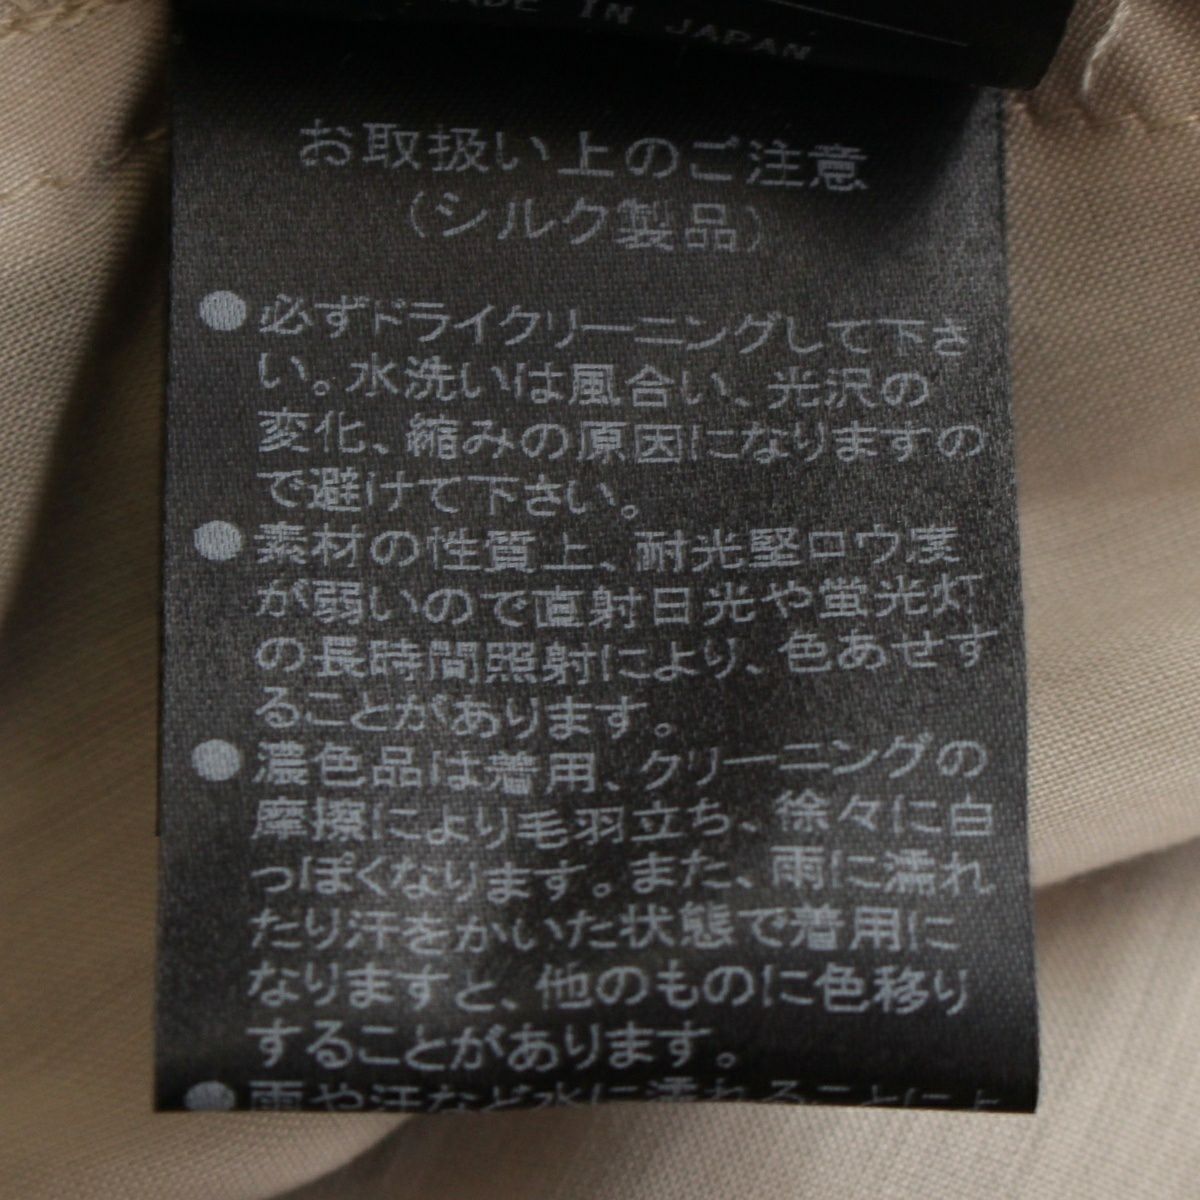 MADE IN JAPAN
お取扱い上のご注意
（シルク製品）
●必ずドライクリーニングして下さ
い。水洗いは風合い、光沢の
変化、縮みの原因になりますの
で避けて下さい。
●素材の性質上、耐光堅ロウ度
が弱いので直射日光や蛍光灯
の長時間照射により、色あせす
ることがあります。
●濃色品は着用、クリーニングの
摩擦により毛羽立ち、徐々に白
っぽくなります。また、雨に濡れ
たり汗をかいた状態で着用に
なりますと、他のものに色移り
することがあります。
●雨や汗など水に濡れることによ